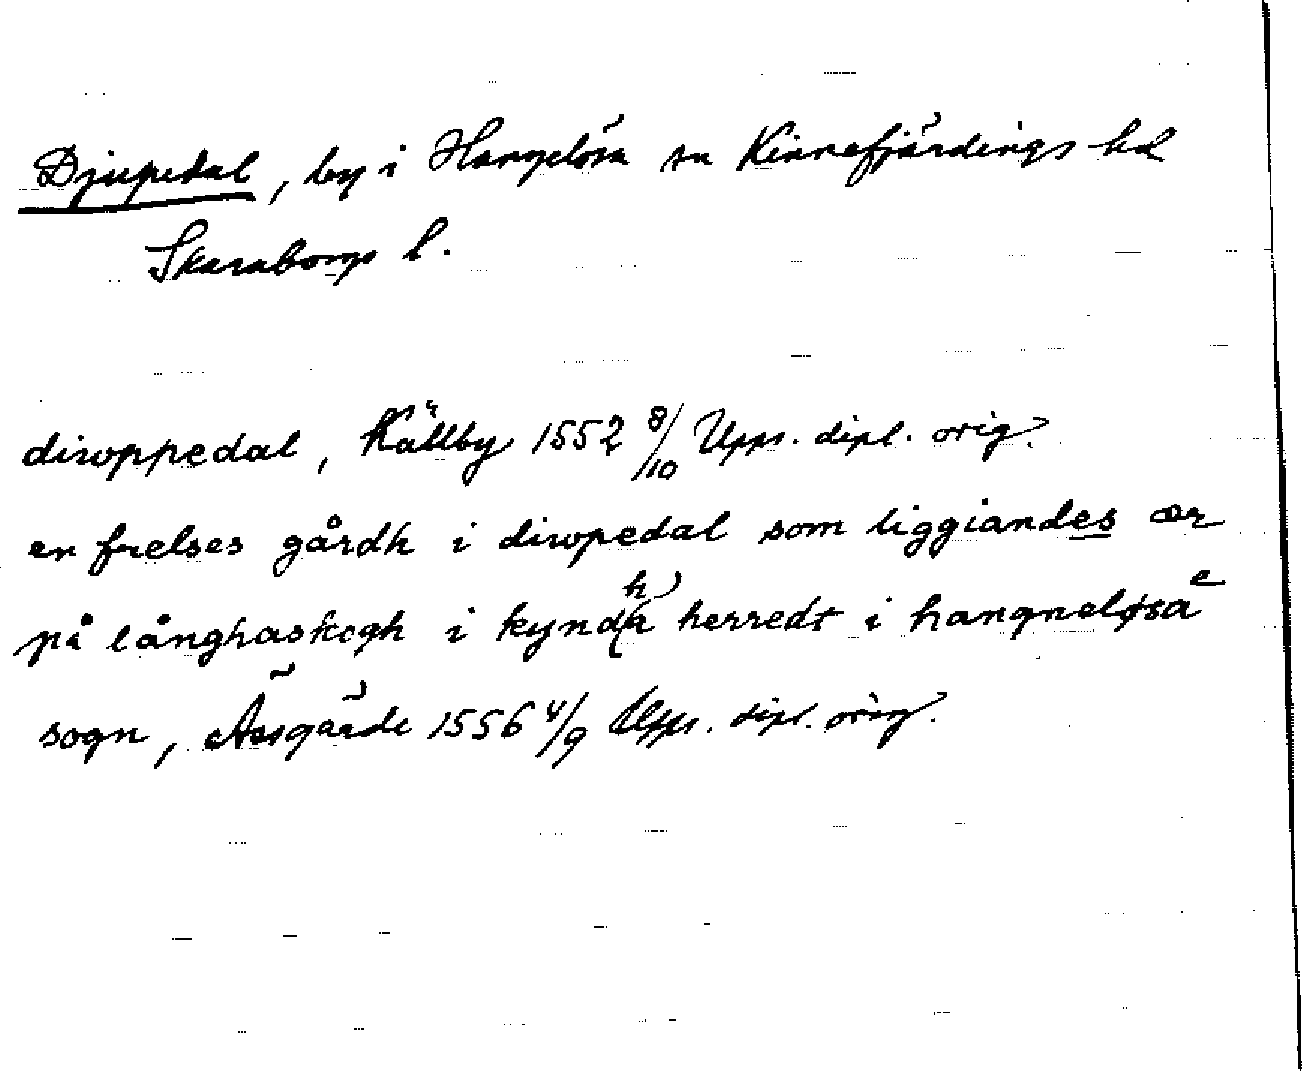 Djupedal, by i Hangelösa sn Kinnefjärdings hd
Skaraborgs l.
diwppedal, Källby 1552 8/10 Upps. dipl. orig.
en frelses gårdh i diwpedal som liggiandes ær
på långhaskogh i kyndha herredt i hangneløsa
sogn, Åsgärde 1556 4/9 Upps. dipl. orig.